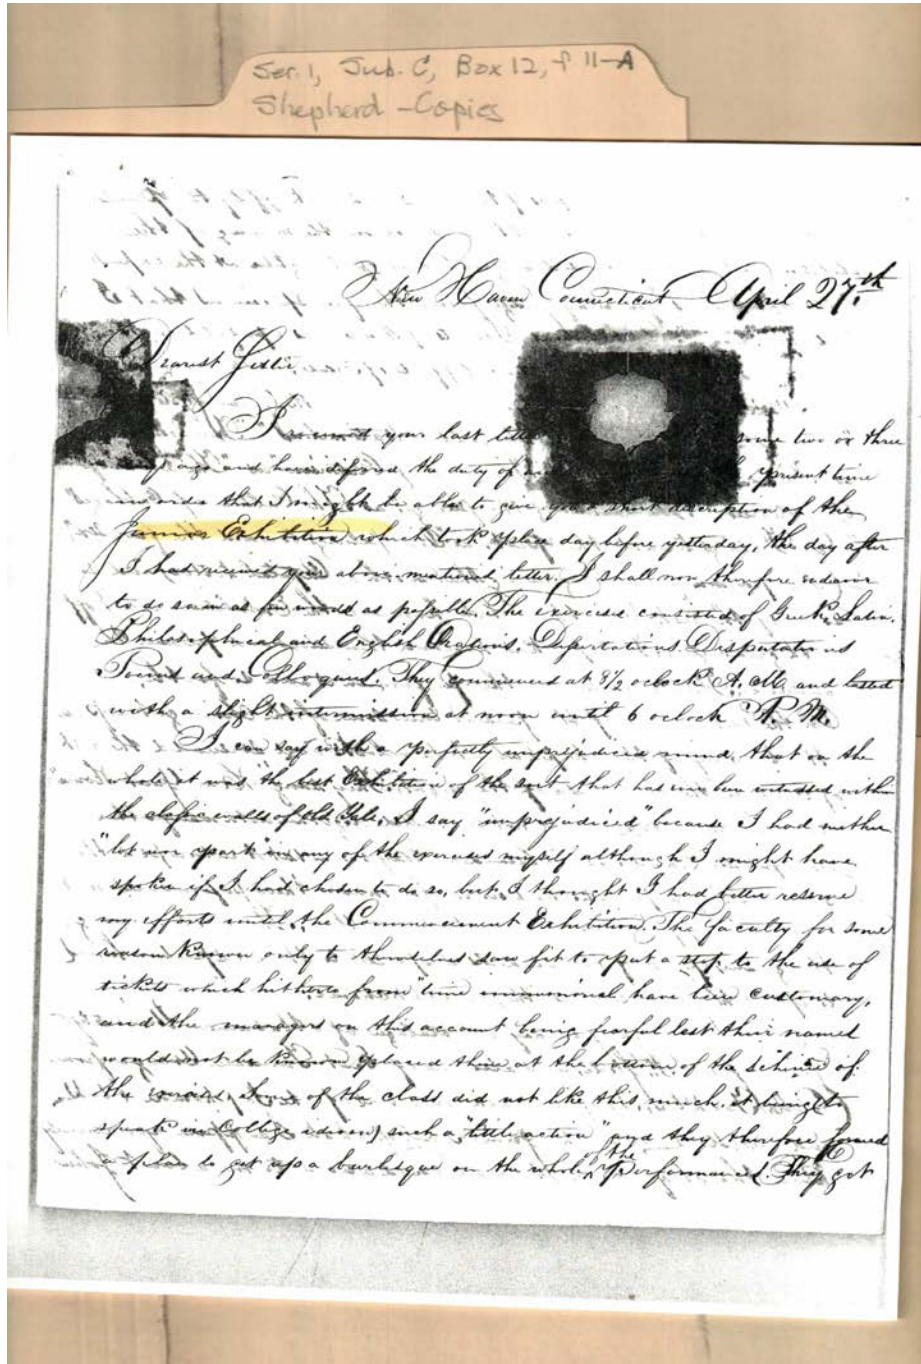 Ser. 1, Sub. C, Box 12, f 11-A
Shepherd - Copies
New Haven Connecticut April 27th
Dearest
I received your last some two or three
ago and have deferred the duty of present time
in order that I might be able to give you a short description of the
Junior Exhibition which took place day before yesterday, the day after
I had received your above mentioned letter. I shall now therefore endeavor
to do so in as few words as possible. The exercises consisted of Greek, Latin,
Philosophical and English Orations, Dissertations, Disputations
Poems and Colloquies. They commenced at 8 1/2 oclock A. M. and lasted
with a slight intermission at noon until 6 oclock P. M.
I can say with a perfectly unprejudiced mind that on the
whole it was the best Exhibition of the sort that has ever been witnessed within
the classic walls of Old Yale, I say "unprejudiced" because I had neither
"lot nor part" in any of the exercises myself although I might have
spoken if I had chosen to do so, but I thought I had better reserve
my efforts until the Commencement Exhibition. The faculty for some
reason known only to themselves saw fit to put a stop to the use of
tickets which hitherto from "time immemorial have been customary,
and the managers on this account being fearful lest their names
would not be known placed them at the bottom of the scheme of
the exercises. Some of the class did not like this much, it being (to
speak in College idiom) such a "little action" and they therefore formed
a plan to get up a burlesque on the whole of the performances. They got